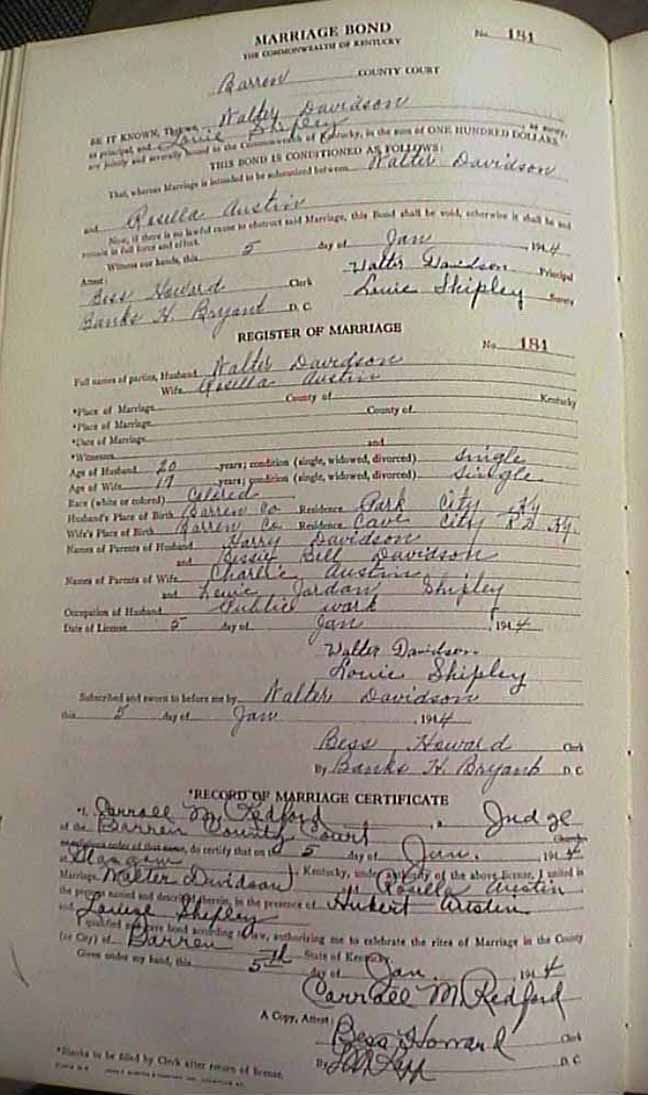 MARRIAGE BOND
No. 181
THE COMMONWEALTH OF KENTUCKY
Barren COUNTY COURT
BE IT KNOWN, That we, Walter Davidson
as principal, and Louie Shipley, as surety,
are jointly and severally bound to the Commonwealth of Kentucky, in the sum of ONE HUNDRED DOLLARS.
THIS BOND IS CONDITIONED AS FOLLOWS:
That, whereas Marriage is intended to be solemnized between Walter Davidson
and Rosella Austin
Now, if there is no lawful cause to obstruct said Marriage, this Bond shall be void, otherwise it shall be and
remain in full force and effect.
Witness our hands, this 5 day of Jan, 1944
Attest: Walter Davidson Principal
Bess Howard Clerk Louie Shipley Surety
Banks H. Bryant D. C.
REGISTER OF MARRIAGE
No. 181
Full names of parties, Husband Walter Davidson
Wife Rosella Austin
*Place of Marriage County of Kentucky
*Place of Marriage County of
*Date of Marriage
*Witnesses and
Age of Husband 20 years; condition (single, widowed, divorced) single
Age of Wife years; condition (single, widowed, divorced) single
Race (white or colored) Colored
Husband's Place of Birth Barren Co Residence Park City Ky
Wife's Place of Birth Barren Co Residence Cave City RD Ky.
Names of Parents of Husband Harry Davidson
and Bell Davidson
Names of Parents of Wife Charlie Austin
and Jordan Shipley
Occupation of Husband Public work
Date of License 5 day of Jan, 1944
Walter Davidson
Louie Shipley
Subscribed and sworn to before me by Walter Davidson
this 5 day of Jan, 1944
Bess Howard Clerk
By Banks H. Bryant D C
*RECORD OF MARRIAGE CERTIFICATE
*I, Carroll M. Redford, a Judge
of the Barren County Court Church,
or religious order of that name, do certify that on the 5 day of Jan. 1944
at Glasgow, Kentucky, under authority of the above license, I united in
Marriage Walter Davidson and Rosella Austin
the persons named and described therein, in the presence of Hubert Austin
and Louise Shipley
I qualified and gave bond according to law, authorizing me to celebrate the rites of Marriage in the County
(or City) of Barren State of Kentucky.
Given under my hand, this 5th day of Jan. 1944
Carroll M. Redford
A Copy, Attest: Bess Howard Clerk
By D. C.
*Blanks to be filled by Clerk after return of license.